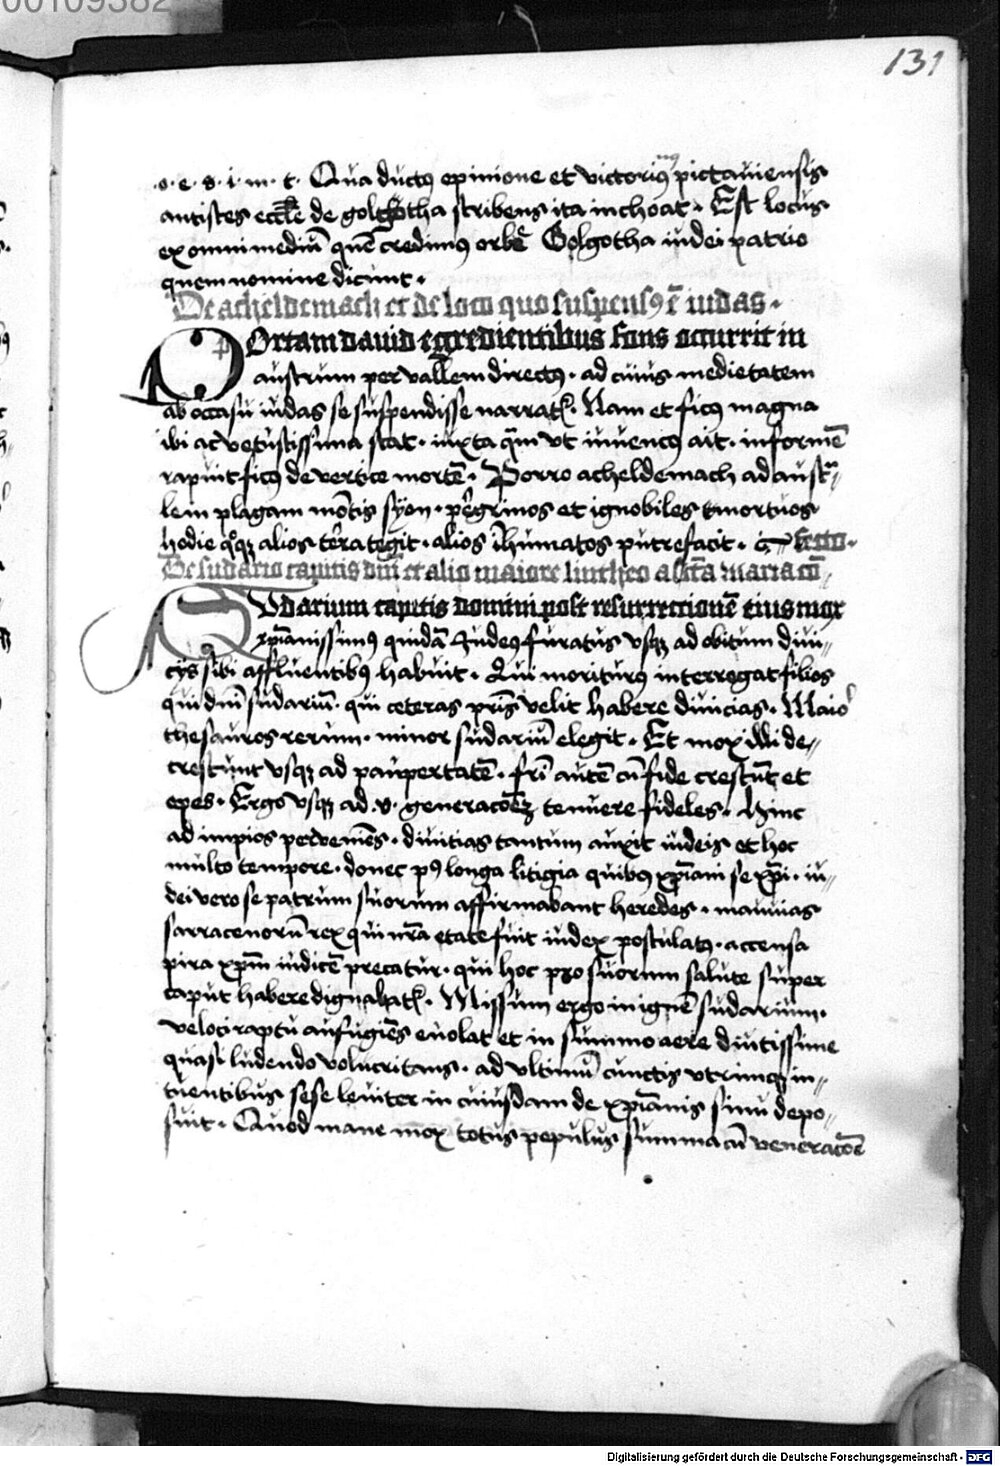 00109382
131
.o.e.s.i.m.t. Qua ductꝯ opinione et victoriꝯ pictauiensis
antistes eccłē de golgotha scribens ita inchoat. Est locus
ex omni mediū quē credimꝯ orbē Golgotha iudei patrio
quem nomine dicunt.
De acheldemach et de loco quo suspensꝯ ē iudas.
POrtam dauid egredientibus fons occurrit in
austrum per vallem directꝯ. ad cuius medietatem
ab occasu iudas se suspendisse narratꝛ. Nam et ficꝯ magna
ibi ac vetustissima stat. iuxta qm̄ vt iuuencꝯ ait. informē
rapuit ficꝯ de vertice mortē. Porro acheldemach ad austᵃ//
lem plagam mōtis syon. peregrinos et ignobiles mortuos
hodie qͦqꝫ alios terra tegit. alios īhumatos putrefacit.
De sudario capitis dn̄i et alio maiore lintheo a sc̄ta maria cō//
SVdarium capitis domini post resurrectionē eius mox
xp̄ianissimꝯ quidā iudeꝯ furatus vsqꝫ ad obitum diui//
cijs sibi affluentibꝯ habuit. Qui moriturꝯ interrogat filios
qui dn̄i sudariū. qui ceteras pr̄is velit habere diuicias. Maioʳ
thesauros rerum. minor sudariū elegit. Et mox illi de//
crescunt vsqꝫ ad paupertatē. fr̄i autē cū fide crescūt et
opes. Ergo vsqꝫ ad .v. generacōeꝫ tenuere fideles. Hinc
ad impios perveniēs. diuitias tantum auxit iudeis et hoc
multo tempore. donec pꝰ longa litigia quibꝯ xp̄iani se xp̄i. iu//
dei vero se patrum suorum affirmabant heredes. mauuias
sarracenorū rex qui nr̄a etate fuit iudex postulatꝯ. accensa
pira xp̄m iudicē precatur. qui hoc pro suorum salute super
caput habere dignabatꝛ. Missum ergo in ignē sudarium.
veloci raptu aufugiēs euolat et in summo aere diutissime
quasi ludendo volucritans. ad vltimū cunctis vtrimqꝫ in//
tuentibus sese leuiter in cuiusdam de xp̄ianis sinu depo//
suit. Quod mane mox totus populus summa cū veneracōē
Digitalisierung gefördert durch die Deutsche Forschungsgemeinschaft - DFG